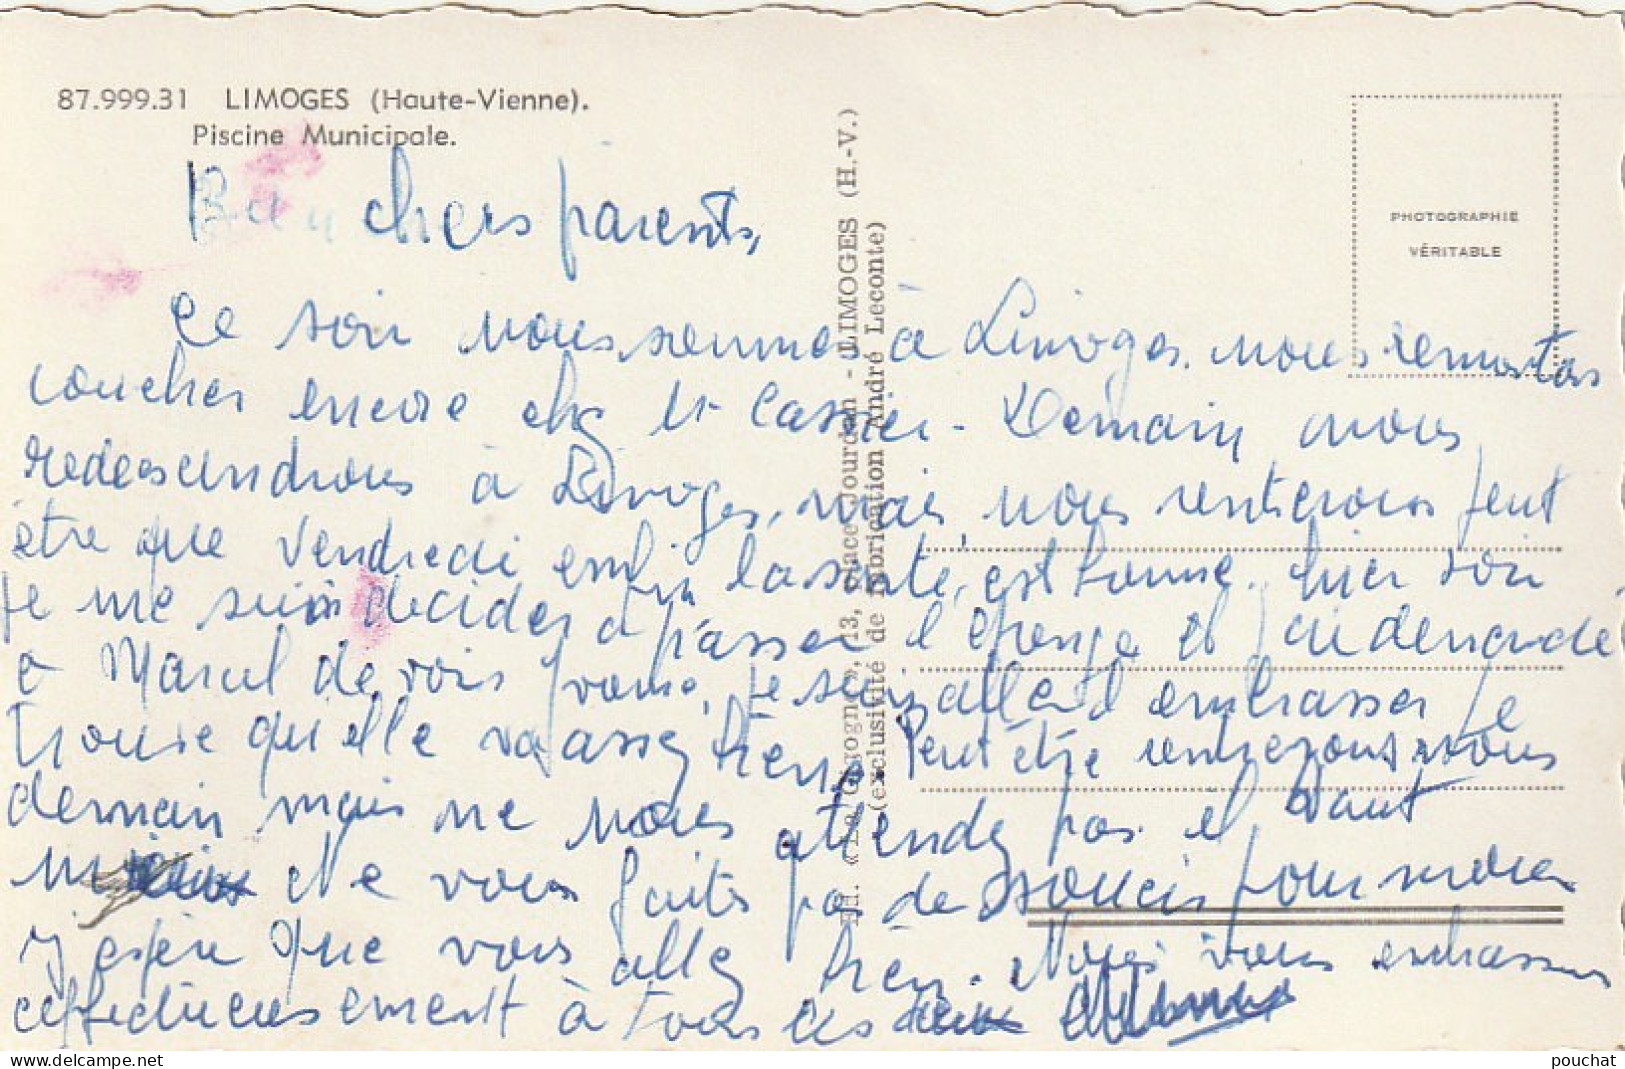 87.999.31 LIMOGES (Haute-Vienne).
Piscine Municipale.
PHOTOGRAPHIE
VÉRITABLE
Ed. « La Gascogne », 13, place Jourdan - LIMOGES (H.-V.)
(exclusivité de fabrication André Leconte)
chers parents,
Ce soir nous sommes à Limoges. nous remontons
coucher encore chez Mr Cassier. Demain nous
redescendrons à Limoges, mais nous rentrerons peut
être que Vendredi enfin la santé, est bonne. hier soir
je me suis décider a passer l'éponge et j'ai demandé
a Marcel de voir je suis allée l'embrasser je
trouve qu'elle va assez bien. Peut être rentrerons nous
demain mais ne nous attendez pas il vaut
mieux Ne vous faites pas de soucis pour nous
J'espère que vous allez bien. Nous vous embrassons
affectueusement à tous les deux
pouchat